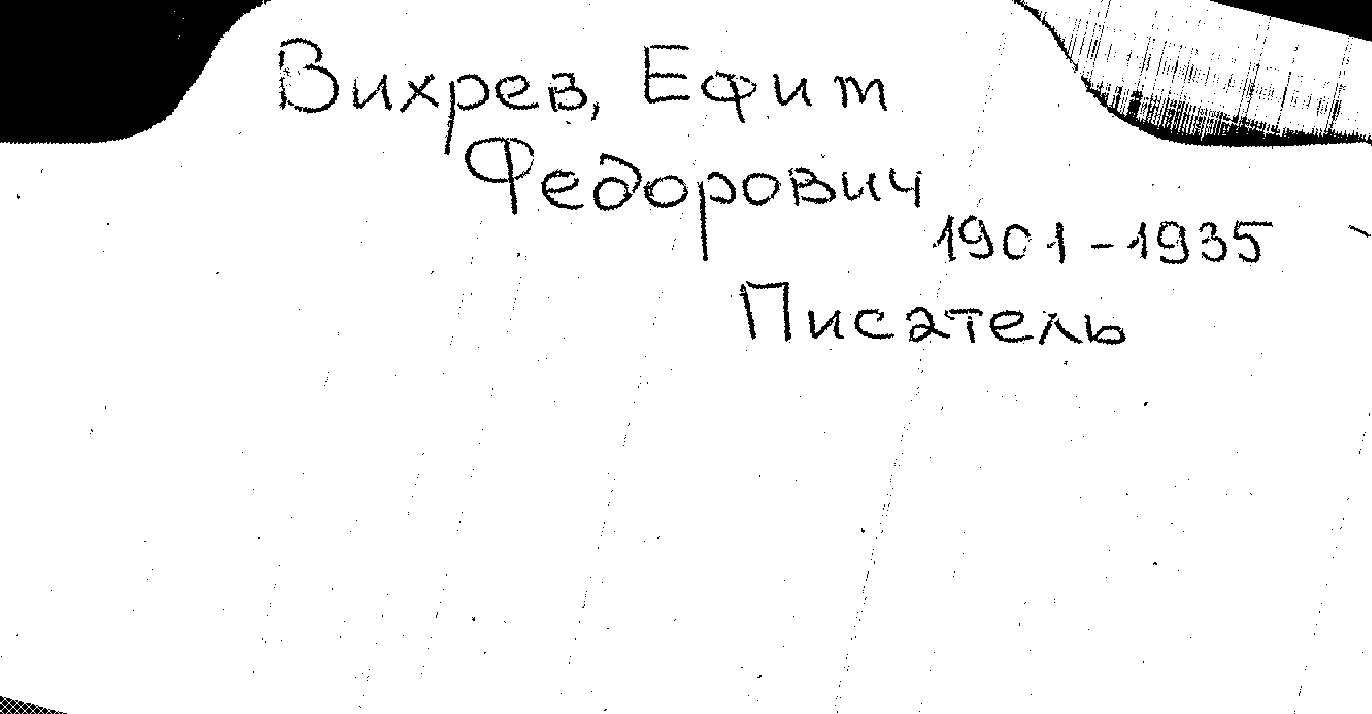 Вихрев, Ефим
Федорович
1901-1935
Писатель